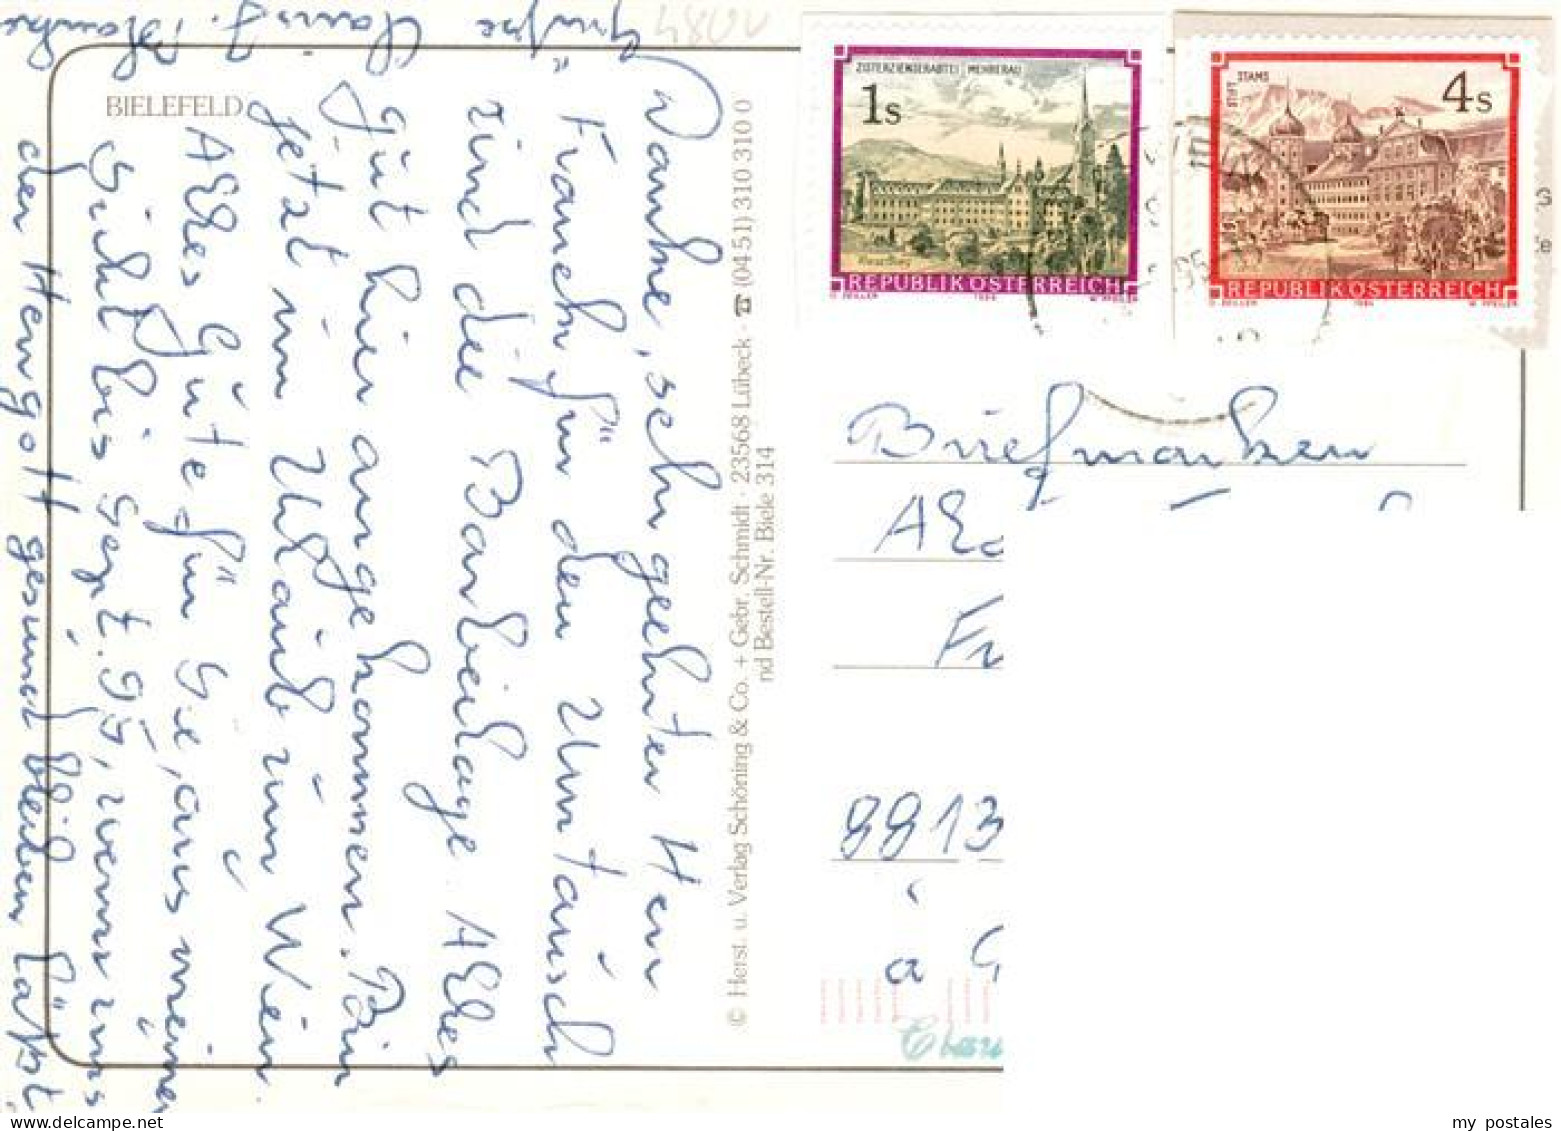 48011
BIELEFELD
Danke, sehr geehrter Herr
Franck für den Umtausch
und die Barbeilage. Alles
gut hier angekommen. Bin
jetzt im Urlaub zum Wien
Alles Gute für Sie, aus meine
Sicht bis sept. 95, wenn uns
der Herrgott gesund bleiben läßt.
Grüße Hans J.
© Herst. u. Verlag Schöning & Co. + Gebr. Schmidt · 23568 Lübeck · ☎ (04 51) 310 310 0
nd Bestell-Nr. Biele 314
ZISTERZIENSERABTEI MEHRERAU
1s
REPUBLIK ÖSTERREICH
STIFT STAMS
4s
REPUBLIK ÖSTERREICH
Briefmarken
my postales